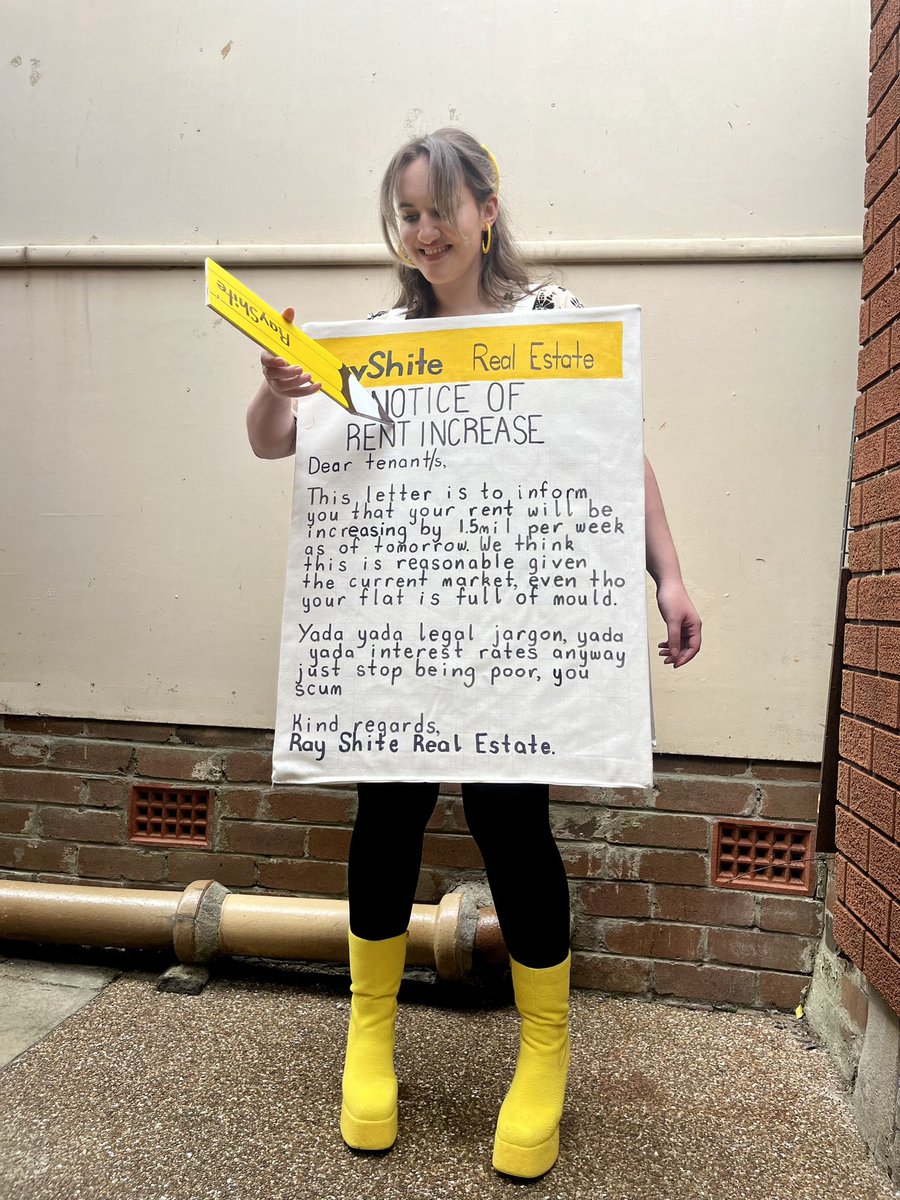 RayShite
ayShite Real Estate
NOTICE OF
RENT INCREASE
Dear tenant/s,
This letter is to inform
you that your rent will be
increasing by 1.5mil per week
as of tomorrow. We think
this is reasonable given
the current market, even tho
your flat is full of mould.
Yada yada legal jargon, yada
yada interest rates anyway
just stop being poor, you
scum
Kind regards,
Ray Shite Real Estate.